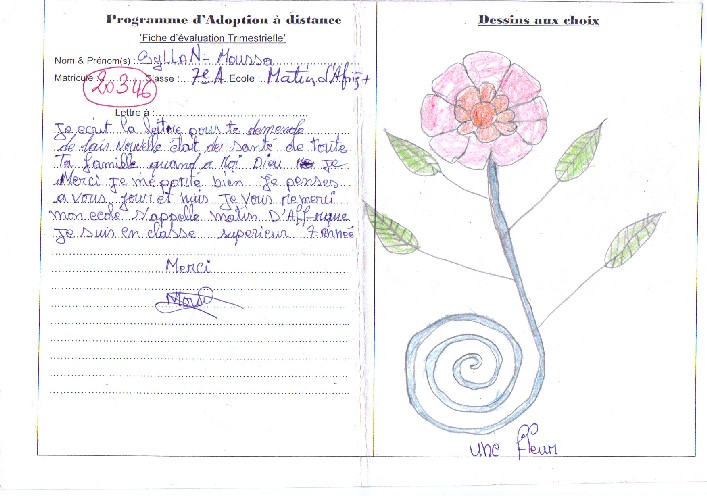 Programme d'Adoption à distance
'Fiche d'évaluation Trimestrielle'
Nom & Prénom(s) : Sylla N- Moussa
Matricule : 20346 Classe : 7e A Ecole : Matin d'Afriq+
Lettre à :
Je ecrit la lettre pour te demande
de fais Nouvelle état de santé de toute
Ta famille quand a Moi Dieu Je
Merci Je me porte bien Je penses
a vous jour et nuis Je vous remerci
mon ecole s'appelle matin D'Affrique
Je suis en classe superieur 7 année
Merci
Dessins aux choix
une fleur